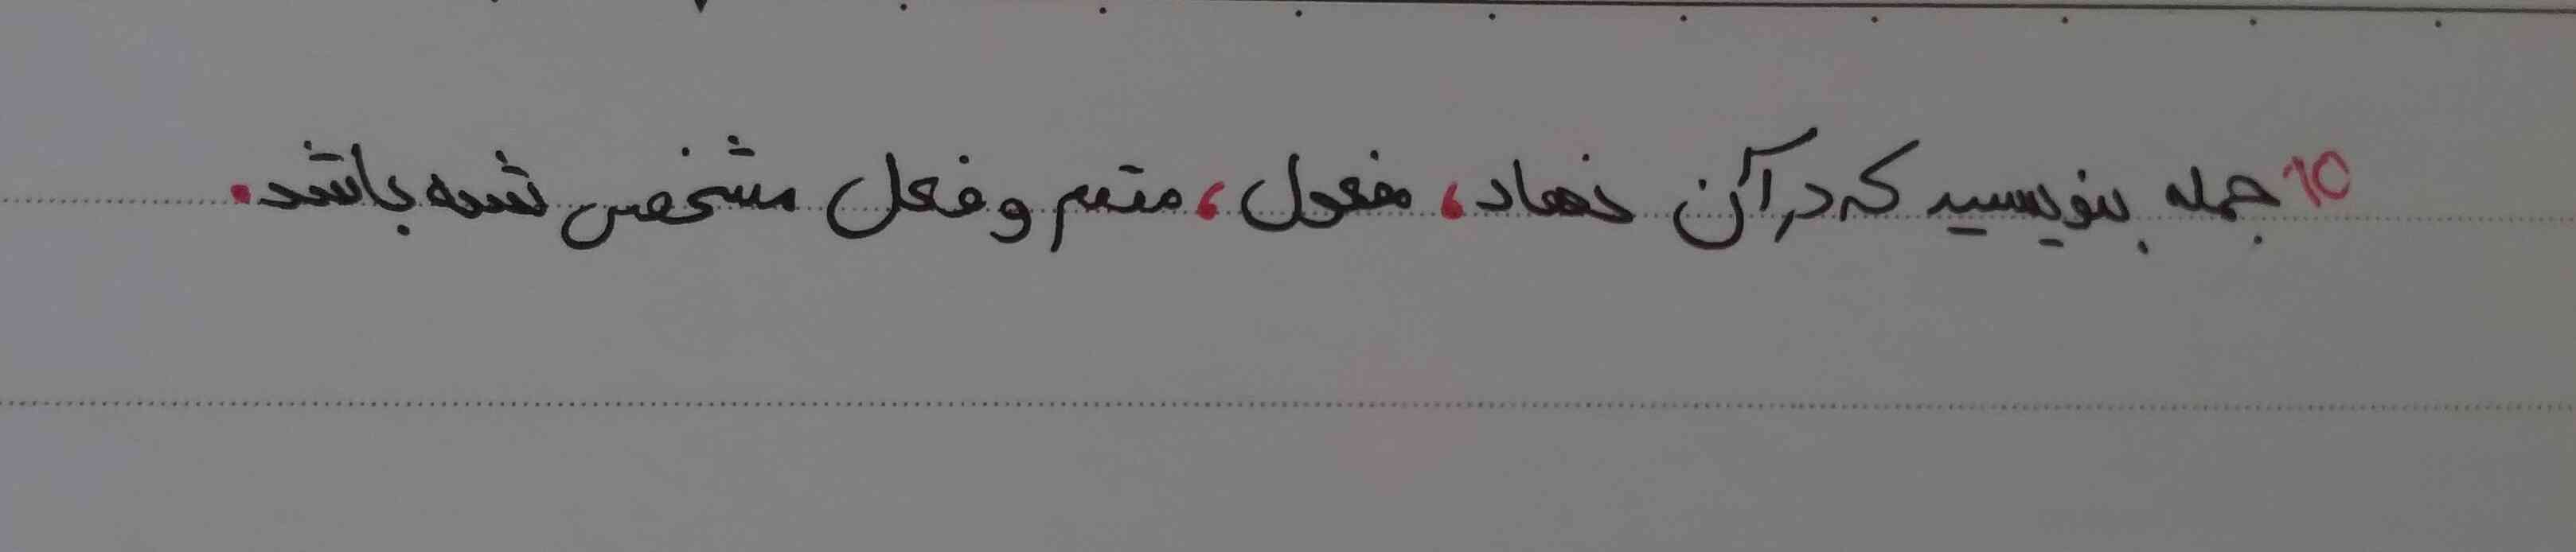 10 جمله بنویسید که در آن نهاد، مفعول، متمم و فعل مشخص شده باشد.